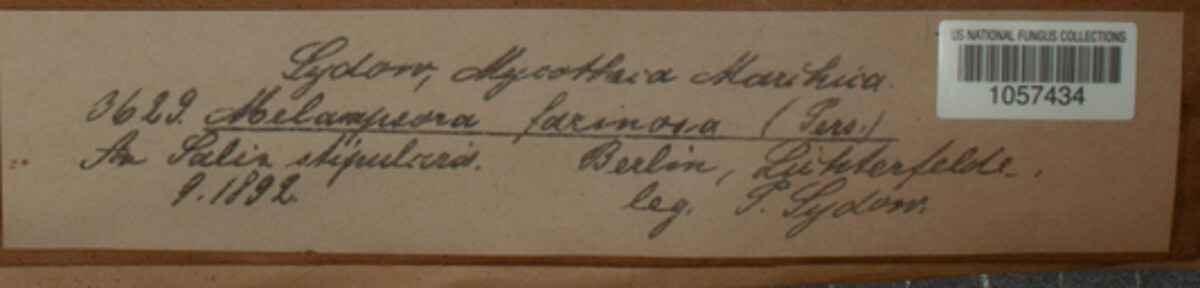 Sydow, Mycotheca Marchica.
3629. Melampsora farinosa (Pers.)
An Salix stipularis. Berlin, Lichterfelde.
9.1892. leg. P. Sydow.
US NATIONAL FUNGUS COLLECTIONS
1057434